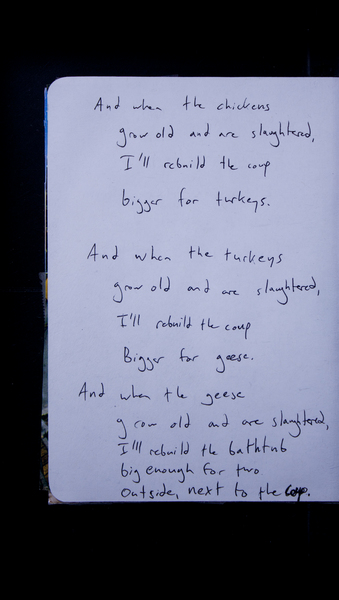 And when the chickens
grow old and are slaughtered,
I'll rebuild the coup
bigger for turkeys.
And when the turkeys
grow old and are slaughtered,
I'll rebuild the coup
Bigger for geese.
And when the geese
grow old and are slaughtered,
I'll rebuild the bathtub
big enough for two
outside, next to the coup.